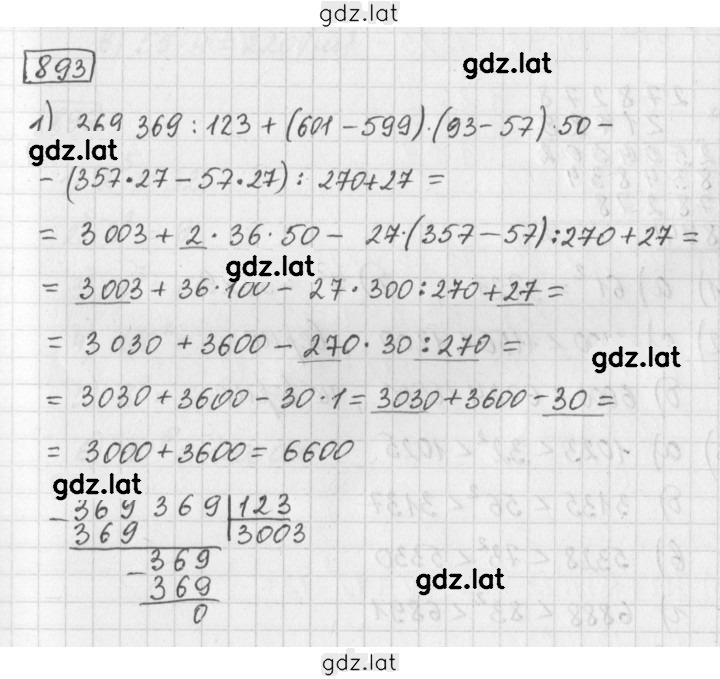 gdz.lat
893
gdz.lat
1) 369 369 : 123 + (601 − 599) · (93 − 57) · 50 −
gdz.lat
− (357 · 27 − 57 · 27) : 270 + 27 =
= 3 003 + 2 · 36 · 50 − 27 · (357 − 57) : 270 + 27 =
gdz.lat
= 3 003 + 36 · 100 − 27 · 300 : 270 + 27 =
= 3 030 + 3600 − 270 · 30 : 270 =
gdz.lat
= 3030 + 3600 − 30 · 1 = 3030 + 3600 − 30 =
= 3000 + 3600 = 6600
gdz.lat
− 369 369 | 123
369 | 3003
− 369
369
gdz.lat
0
gdz.lat